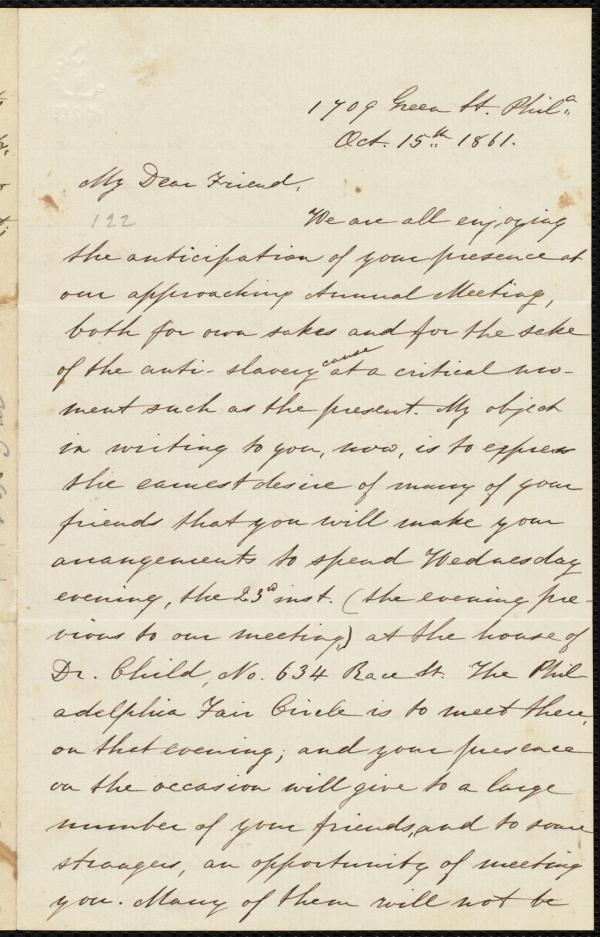 1709 Green St. Phila.
Oct. 15th 1861.
My Dear Friend,
122
We are all enjoying
the anticipation of your presence at
our approaching Annual Meeting,
both for own sakes and for the sake
of the anti-slavery cause at a critical mo-
ment such as the present. My object
in writing to you, now, is to express
the earnest desire of many of your
friends that you will make your
arrangements to spend Wednesday
evening, the 23d inst. (the evening pre-
vious to our meeting,) at the house of
Dr. Child, No. 634 Race St. The Phil-
adelphia Fair Circle is to meet there,
on that evening; and your presence
on the occasion will give to a large
number of your friends, and to some
strangers, an opportunity of meeting
you. Many of them will not be